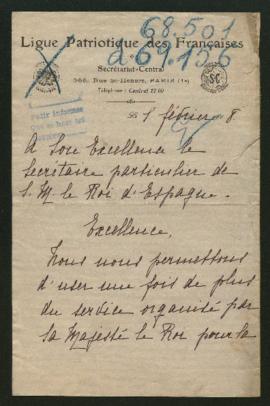 68.501
269.155
Ligue Patriotique des Françaises
Secrétariat Central
368, Rue St-Honoré, PARIS (1er)
Téléphone : Central
SC
Pedir informes
1 février 8
A Son Excellence le
Secrétaire particulier de
S. M. le Roi d'Espagne.
Excellence,
Nous nous permettons
d'user une fois de plus
du service organisé par
Sa Majesté le Roi pour la